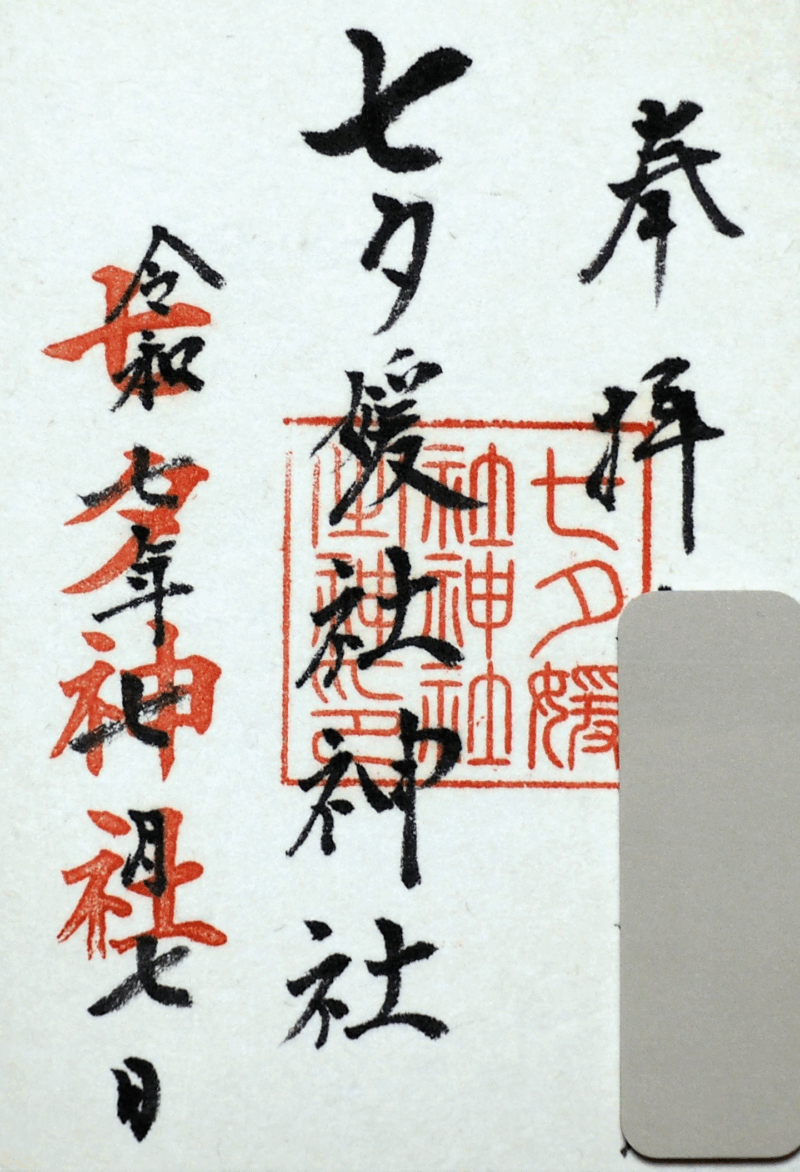 奉拝
七夕媛社神社
七夕媛
社神社
令和七年七月七日
七夕神社